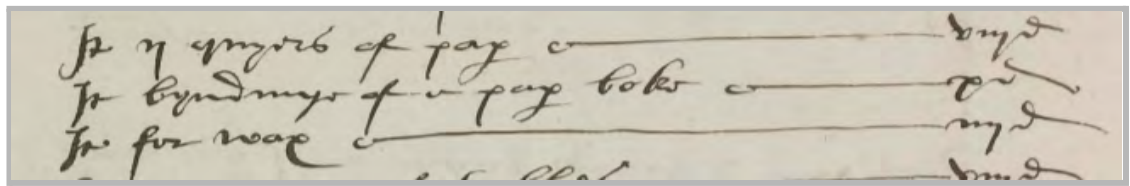 It ij quyers of pap viijd
It byndinge of a pap boke xd
It for wax iijd